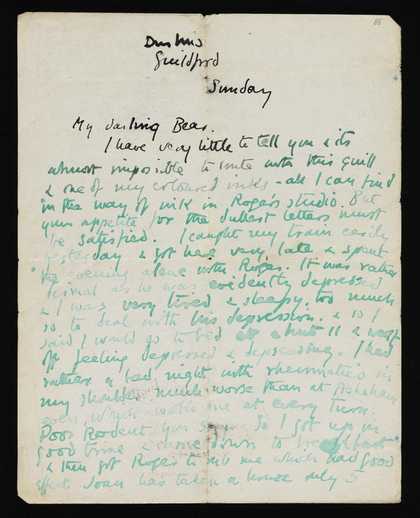 Durbins
Guildford
Sunday
My darling Bear.
I have very little to tell you & its
almost impossible to write with this quill
& one of my coloured inks – all I can find
in the way of ink in Roger's studio. But
your appetite for the dullest letters must
be satisfied. I caught my train easily
yesterday & got here very late & spent
the evening alone with Roger. It was rather
as he was evidently depressed
& I was very tired & sleepy, too much
so to deal with his depression. & so I
said I would go to bed at about 11 & went
off feeling depressed & depressing. I had
rather a bad night with rheumatism in
my shoulder much worse than at Asheham
even, which woke me at every turn.
Poor Rodent you So I got up in
good time & came down to breakfast
& then got Roger to rub me which had good
effect. Joan has taken a house only 5